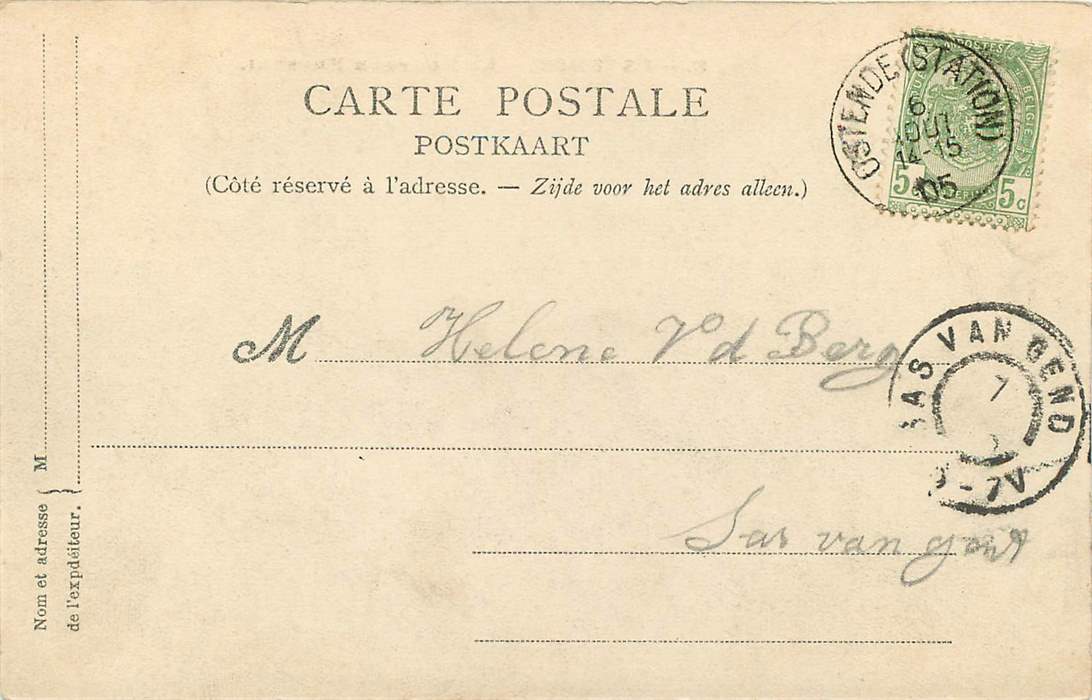 CARTE POSTALE
POSTKAART
(Côté réservé à l'adresse. — Zijde voor het adres alleen.)
OSTENDE (STATION)
6
AOUT
14-15
05
POSTES
BELGIE
5 5c
M Helene Vd Berg
SAS VAN GEND
7
-7V
Sas van gent
Nom et adresse
de l'expdéiteur.
M